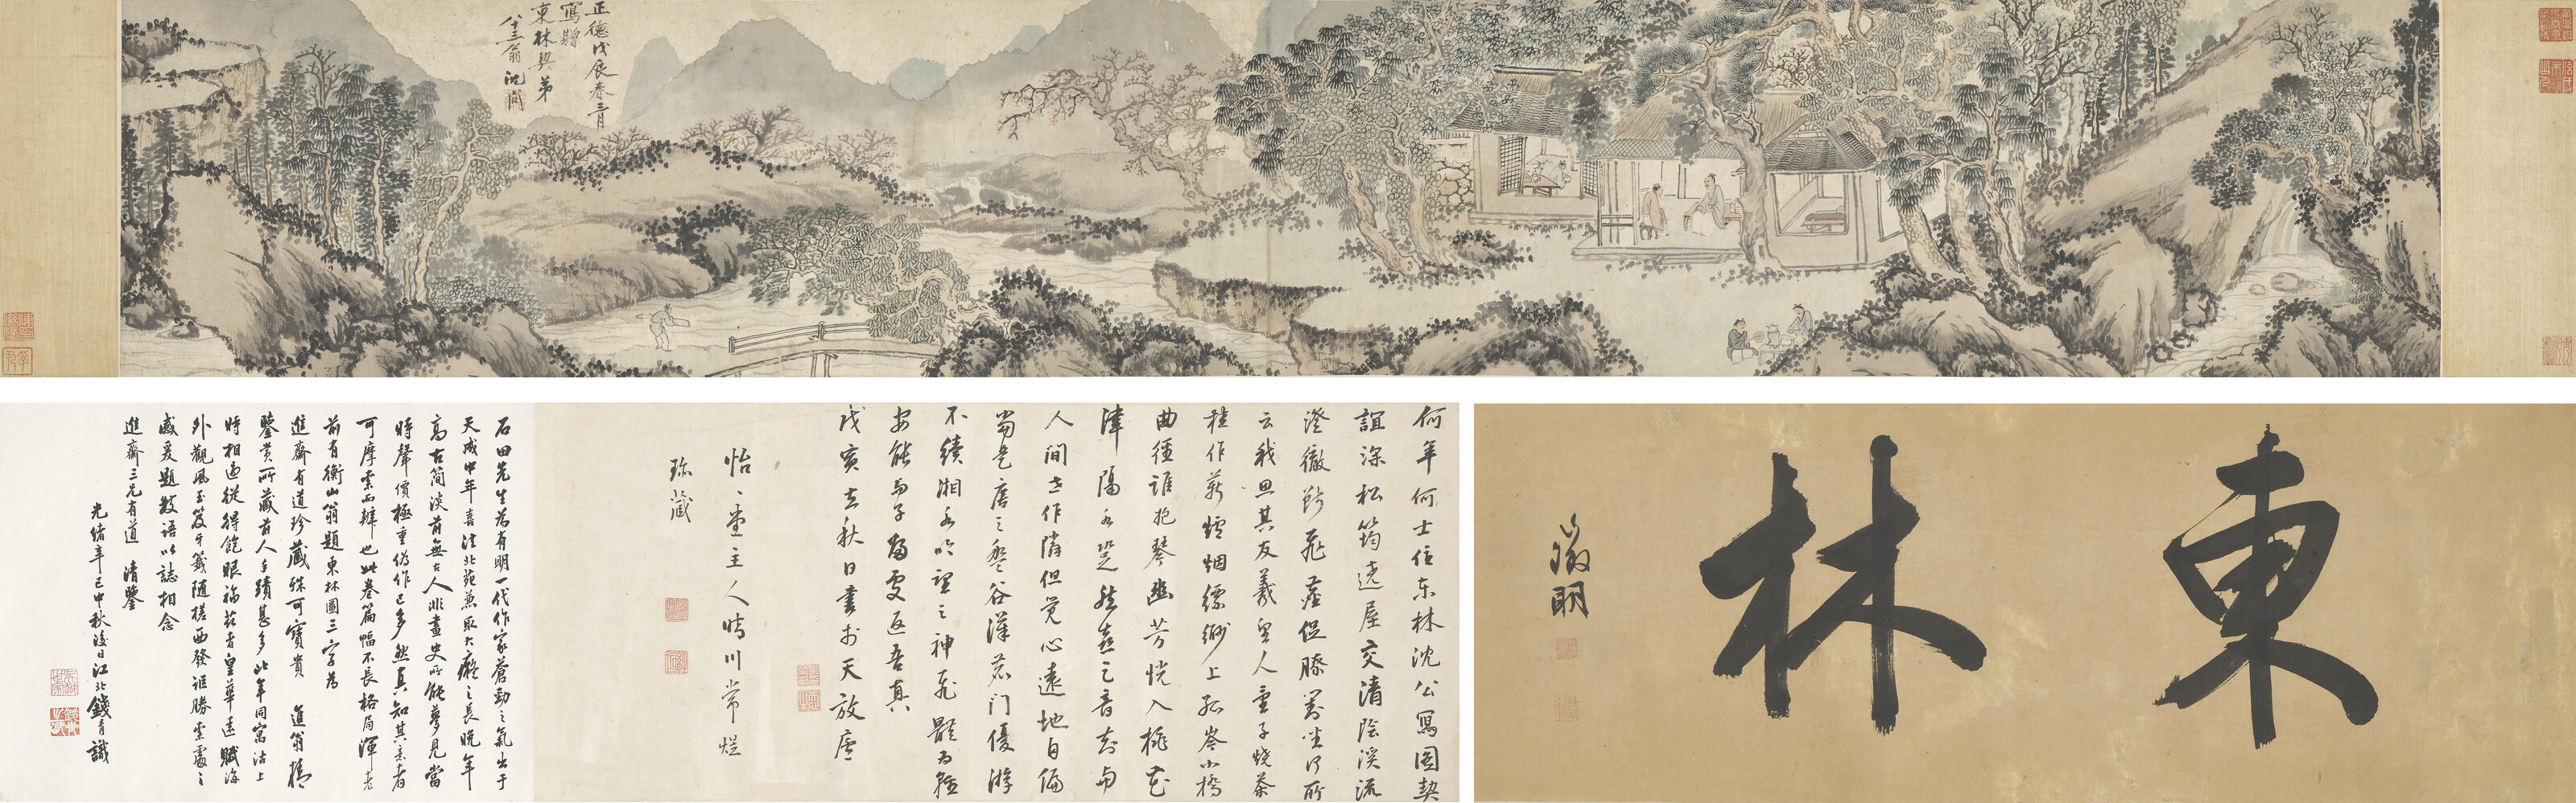 正德戊辰春三月
寫贈
東林契弟
八十三翁沈周
東林
徵明
何年何士住東林沈公寫圖契
誼深松筠遶屋交清陰溪流
澄徹斷飛塵促膝對坐何所
云我思其友羲皇人童子燒茶
桂作薪爐烟縹緲上孤岑小橋
曲徑誰抱琴幽芳恍入桃花
津隔水跫然喜之音知與
人間世作隣但覺心遠地自偏
當是唐之盤谷漢鹿門優游
不續湘水吟望之神飛體為輕
安能與子為處返吾真
戊寅立秋日書於天放庵
怡怡堂主人時川常煜
珍藏
石田先生為有明一代作家蒼勁之氣出于
天成中年喜法北苑兼取大癡之長晚年
高古簡淡前無古人非畫史所能夢見當
時聲價極重偽作已多然真知其意者
可摩索而辨也此卷篇幅不長格局渾老
前有衡山翁題東林圖三字為
進齋有道珍藏殊可寶貴 進翁精
鑒賞所藏前人手蹟甚多比年同寓沽上
時相過從得飽眼福茲者皇華遠賦海
外觀風玉笈牙籤隨槎西發誰勝索處之
感爰題數語以誌相念
進齋三兄有道 清鑒
光緒辛巳中秋後日江北錢青識